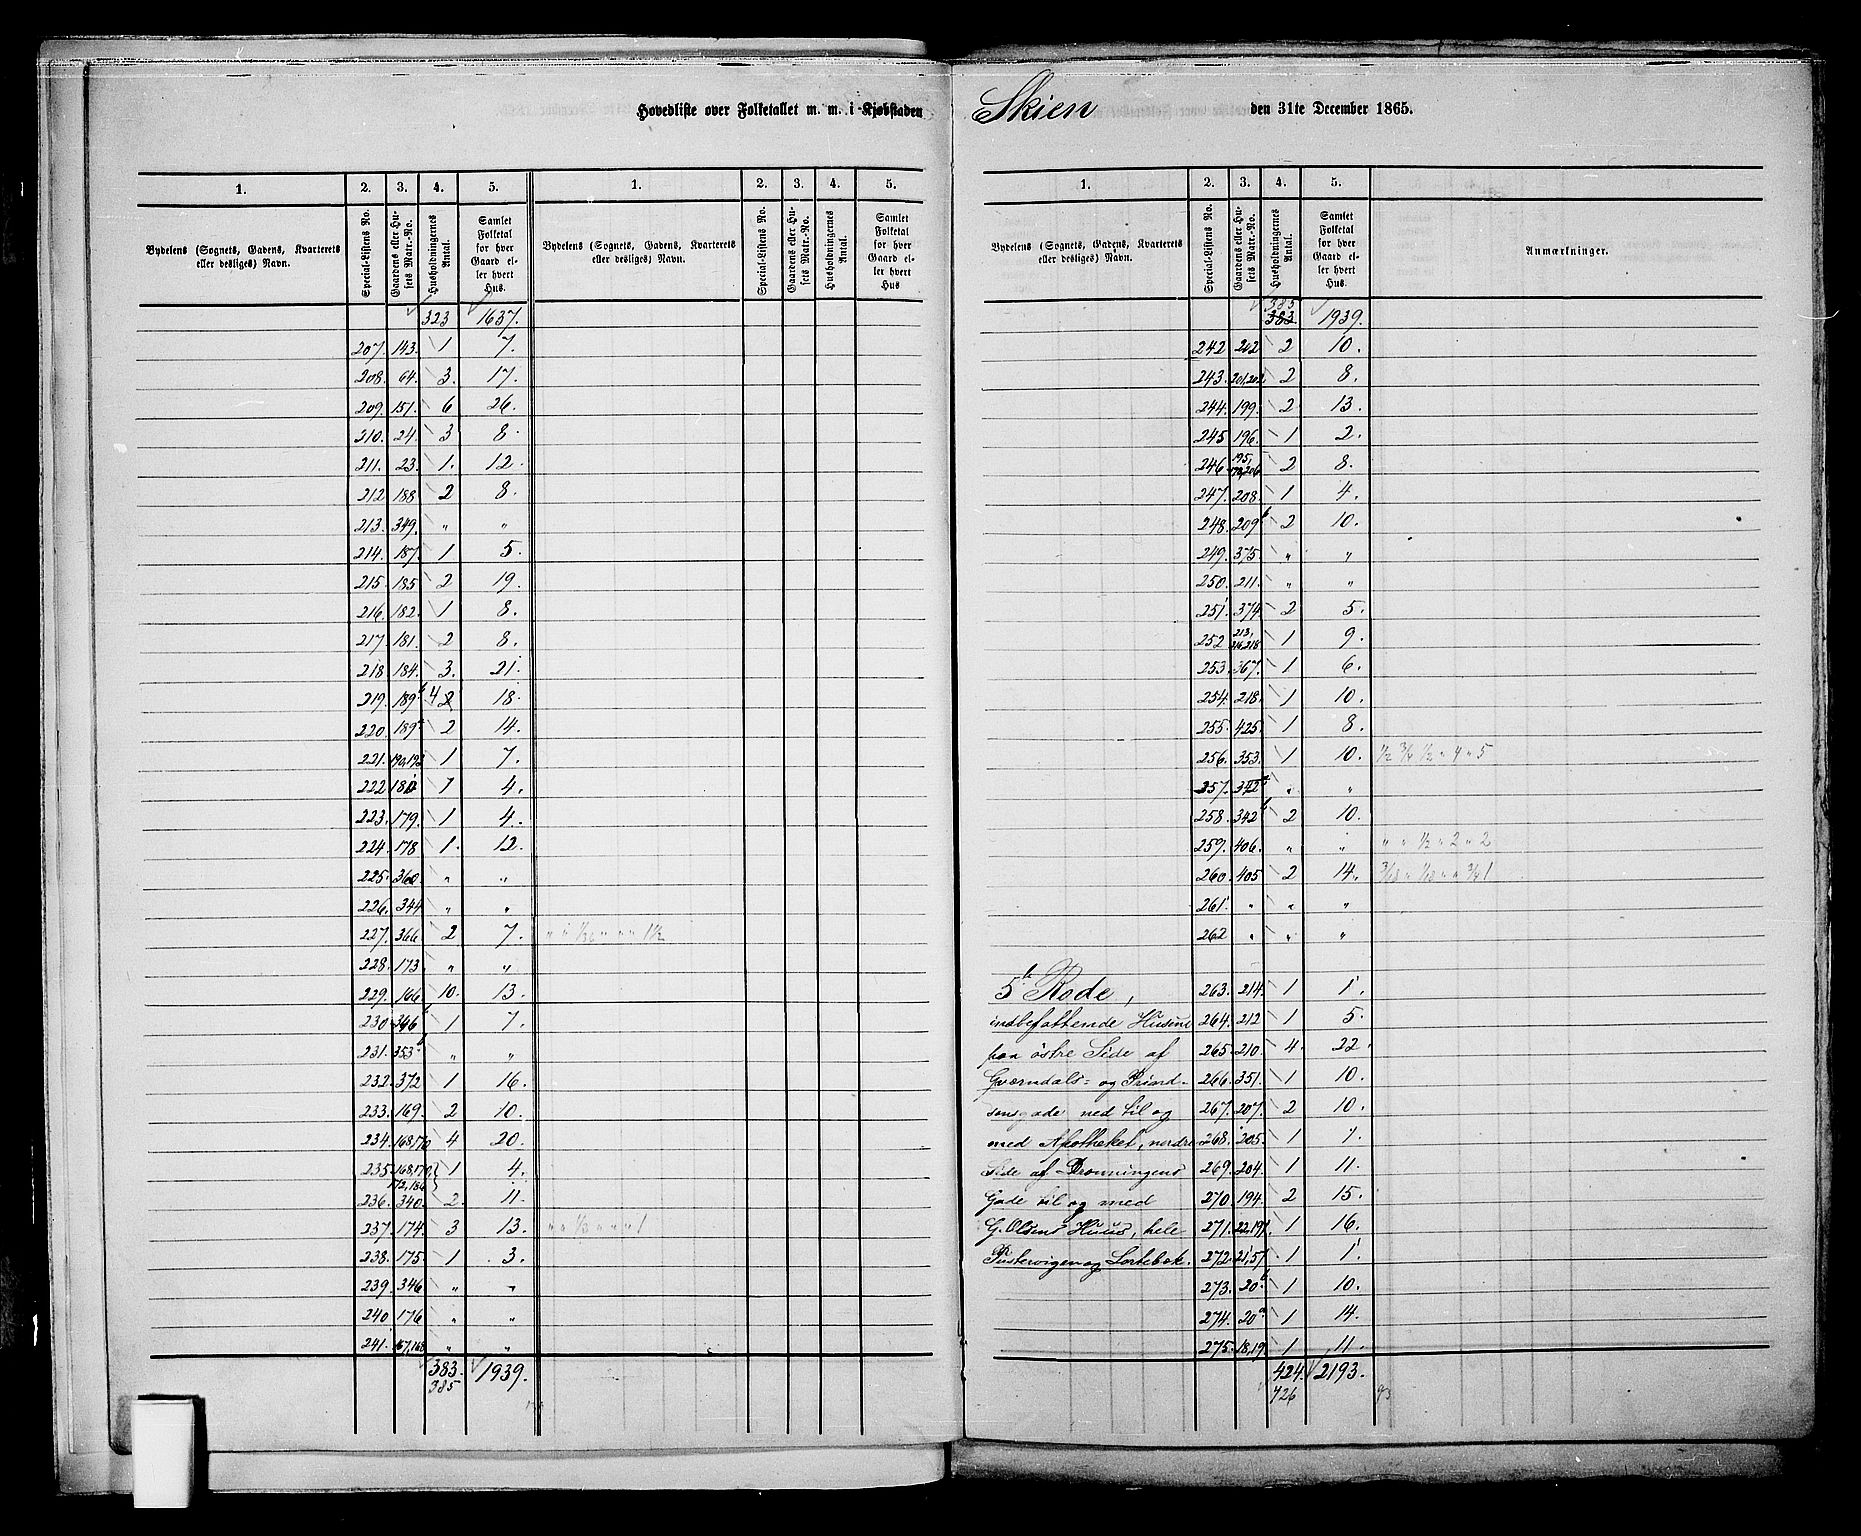 Hovedliste over Folketallet m. m. i Kjøbstaden Skien den 31te December 1865.
1. 2. 3. 4. 5. 1. 2. 3. 4. 5.
Bydelens (Sognets, Gadens, Kvarterets eller desliges) Navn. Special-Listens No. Gaardens eller Husets Matr.-No. Husholdningernes Antal. Samlet Folketal for hver Gaard eller hvert Hus. Bydelens (Sognets, Gadens, Kvarterets eller desliges) Navn. Special-Listens No. Gaardens eller Husets Matr.-No. Husholdningernes Antal. Samlet Folketal for hver Gaard eller hvert Hus
323 1637.
207. 143. 1 7.
208. 64. 3. 17.
209. 151. 6 26.
210. 24. 3 8.
211. 23. 1. 12.
212 188 2 8.
213. 349. " "
214. 187. 1 5.
215. 185 2 19.
216. 182. 1 8.
217. 181. 2 8.
218. 184. 3. 21.
219. 189b 4 2 18.
220. 189 2 14.
221. 190,192 1 7.
222 180 1 4.
223. 179. 1 4.
224. 178 1. 12.
225. 360. " "
226. 344 " "
227. 366 2 7. " " 1/36 " " " 1 1/2
228. 173 " "
229. 166 10. 13.
230. 346b 1 7.
231. 353b " "
232. 372 1 16.
233. 169. 2 10.
234. 168,170 4 20.
235 168,170, 172,186 1 4.
236. 340. 2. 11.
237. 174. 3 13. " " 1/3 " " " 1
238. 175. 1 3.
239. 346 " "
240. 176 " "
241. 167,168 " "
383. 1939.
385
1. 2. 3. 4. 5.
Bydelens (Sognets, Gadens, Kvarterets eller desliges) Navn. Special-Listens No. Gaardens eller Husets Matr.-No. Husholdningernes Antal. Samlet Folketal for hver Gaard eller hvert Hus. Anmærkninger.
385
383 1939.
242 202 2 10.
243. 201,202. 2 8.
244. 199. 2 13.
245 196. 1 2.
246 195, 206 2 8.
247. 208. 1 4.
248. 209b 2 10.
249. 375. " "
250. 211. " "
251. 374 2 5.
252 213, 216,218 1 9.
253. 367. 1 6.
254. 218. 1 10.
255. 425. 1 8.
256. 353. 1 10. 1/2 3/4 1/2 " 4 " 5
257. 342a " "
258. 342b 2 10.
259. 406. " " " " 1/2 " 2 " 2
260. 405 2 14. " " 3/4 1
261. " " "
262 " " "
5te Rode, 263. 214. 1 1.
indbefattende Husene 264. 212 1 5.
paa østre Side af 265. 210. 4. 22.
Gværndals- og Prind- 266. 351. 1 10.
sensgade ned til og 267. 207. 2 10.
med Apotheket, nordre 268. 205. 1 7.
Side af Dronningens 269. 204. 1 11.
Gade til og med 270. 194. 2 15.
G. Olsens Huus, hele 271. 22,191. 1 16.
Pustervigen og Lortebæk. 272. 21,57 1 1.
273. 20b 1 10.
274. 20a 1 14.
275. 18,19. 1 11.
424. 2193.
426 93